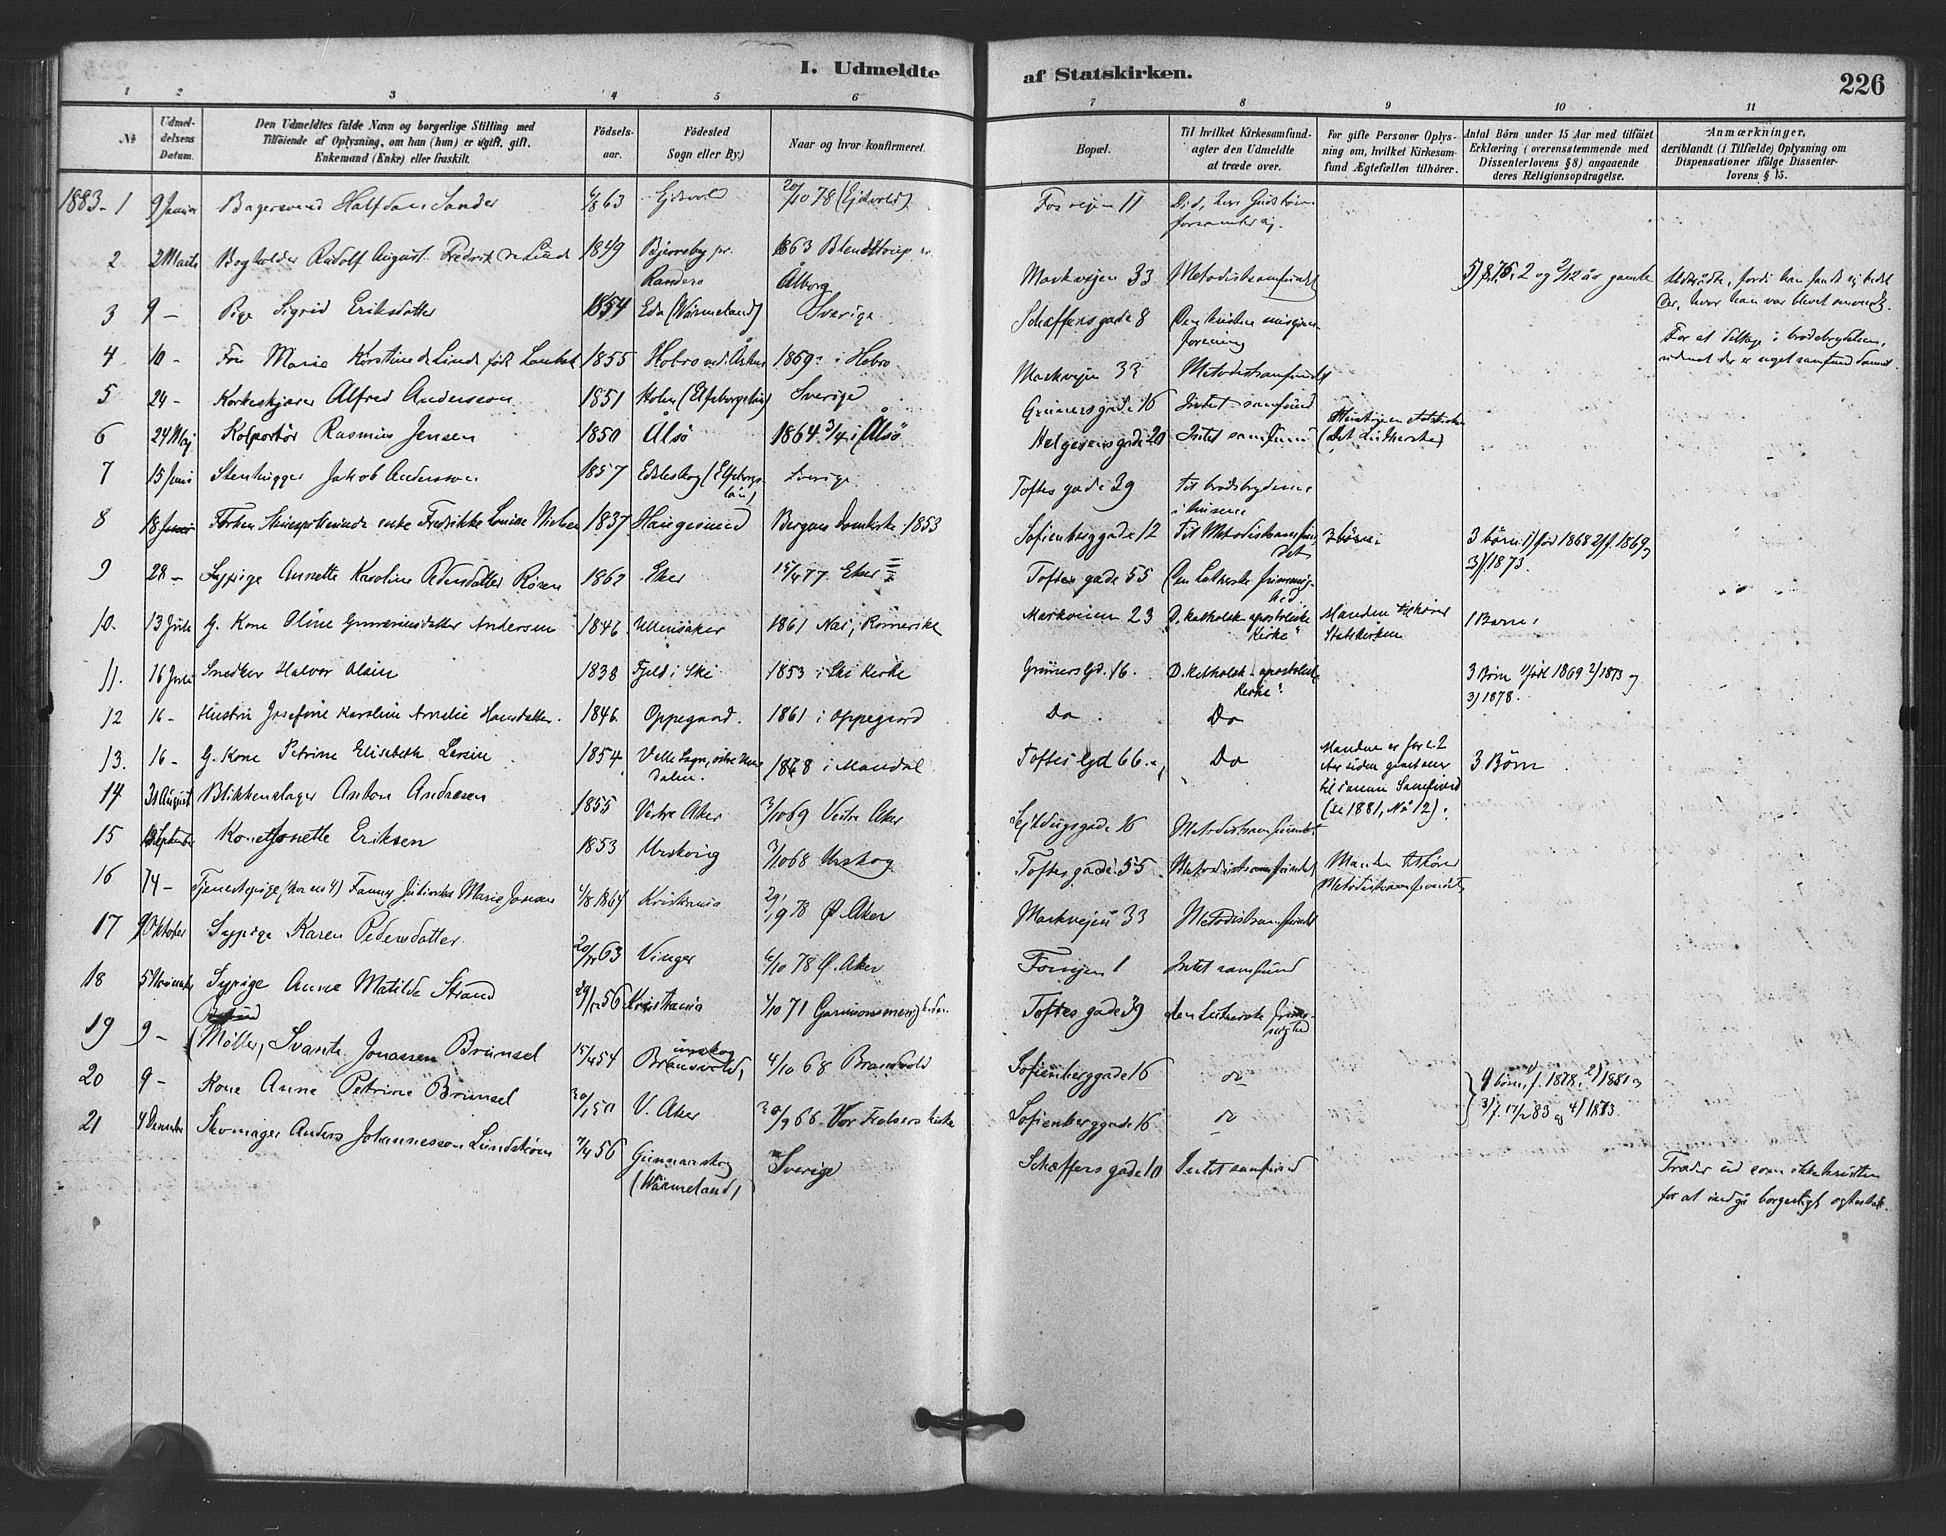 I. Udmeldte
af Statskirken.
226
1 2 3 4 5 6
7 8 9 10 11
№
Udmel-
delsens
Datum.
Den Udmeldtes fulde Navn og borgerlige Stilling med
Tilføiende af Oplysning, om han (hun) er ugift, gift,
Enkemand (Enke) eller fraskilt.
Fødsels-
aar.
Fødested
Sogn eller By.)
Naar og hvor konfirmeret.
Bopæl.
Til hvilket Kirkesamfund-
agter den Udmeldte
at træde over.
For gifte Personer Oplys-
ning om, hvilket Kirkesam-
fund Ægtefællen tilhører.
Antal Børn under 15 Aar med tilføiet
Erklæring (overensstemmende med
Dissenterlovens § 8) angaaende
deres Religionsopdragelse.
Anmærkninger,
deriblandt (i Tilfælde) Oplysning om
Dispensationer ifølge Dissenter-
lovens § 15.
1883. 1 9 Januar Bagersvend Halfdan Sander 63 Ejdsvold 20/10 78 (Ejdsvold) Fossvejen 11
forsamling.
2 2 Marts Bogholder Rudolf August Fredrik de Linde 1849 Bjerreby pr. Randers 1863 Ålborg Markvejen 33 Metodistsamfundet 2 og 2/12 år gamle Udtrådte, fordi han fandt sig bedst
der, hvor han var blevet omvendt.
3 9 — Pige Sigrid Eriksdatter 1854 Eda (Värmeland) Sverige Schæffersgade 8 Den kristne misjons-
forening For at deltage i brødsbrydelsen,
4 10 - Fru Marie Kirstine de Linde født 1855 Hobro 1869 i Hobro Markvejen 33 Metodistsamfundet
5 24 - Korkeskjærer Alfred Andersson 1851 (Elfsborgslän) Sverige Grünersgade 16 Intet samfund
6 24 Maj Kolportør Rasmus Jensen 1850 Ålsø 1864 3/4 i Ålsø Helgesensgade 20 Intet samfund (det Lutherske)
7 15 Juni Stenhugger Jakob Andersson 1857 Edsleskog (Elfsborgs-
län) Sverige Toftes gade 29 til brødsbrydelsen
i husene
8 18 Juni enke Fredrikke Louise Nielsen 1837 Haugesund Bergens Domkirke 1853 Sofienberggade 12 Til Metodistsamfun-
det 3 børn: 1) fød 1868 2) f. 1869 og
3) f 1873.
9 28 - Sypige Annette Karoline Pedersdatter Røren 1862 Eker 15/4 77 Eker Toftes gade 55 Den Lutherske frimenig-
hed
10. 13 Juli G. Kone Oline Gunneriusdatter Andersen 1846 Ullensaker 1861 Næs, Romerike Markveien 23 „D. katholsk apostoliske
Kirke" Manden tilhører
Statskirken 1 Barn.
11. 16 Juli Snedker Halvor Olsen 1838 Fjeld i Ski 1853 i Ski Kirke Grünersgd. 16. D. katholsk-apostolisk
Kirke". 3 Børn 1) født 1869 2) 1873 og
3) 1878.
12 16 - Hustru Josefine Karoline Amalie Hansdatter. 1846 Oppegaard. 1861 i Oppegaard Do Do
13. 16 - G. Kone Petrine Elisabeth Larsen 1854 1868 i Mandal Toftes gd 66. Do Manden er for c. 2
Aar siden
til samme Samfund
(se 1881, No 12). 3 Børn
14 31 August Blikkenslager Anton Andresen 1855 Vestre Aker 3/10 69 Vestre Aker 16 Metodistsamfundet
15 September Kone Jonette Eriksen 1853 Urskoug 3/10 68 Urskog Toftes gade 55 Metodistsamfundet Manden tilhører
Metodistsamfundet
16 14 — Tjenestepige (hos no 4) Fanny Marie Jonsen 1864 Kristiania 29/9 78 Ø. Aker Markvejen 33 Metodistsamfundet
17 9 Oktober Sypige Karen Pedersdatter 63 Vinger 6/10 78 Ø. Aker Fossvejen 1 Intet samfund
18 5 November Sypige Anna Matilde Strand 56 Kristiania 1/10 71 Garnisonsmenigheden Toftes gade 39 den Lutherske frime-
nighed
19 9 — (Møller, Svante Jonassen Brunsel 15/4 54 Brandvold, 4/10 68 Brandvold Sofienberggade 16 do
20 9 - Kone Anne Petrine Brunsel 50 V. Aker 30/9 66 Vor Frelsers kirke Sofienberggade 16 do 4 børn, 1) f. 1878, 2) 1881
21 4 December Skomager Anders Johannesson Lundstrøm 56 Gunnarskog
(Värmeland) Sverige Schæffers gade 10 Intet samfund Træder ud som ikke kristen
for at indgå borgerligt ægteskab.